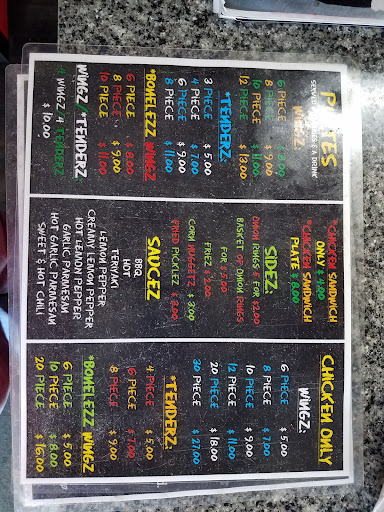 PLATES
SERVED
& A DRINK
WINGZ:
6 PIECE
8 PIECE $ 9.00
10 PIECE $ 11.00
12 PIECE $ 13.00
*TENDERZ:
3 PIECE $ 5.00
4 PIECE $ 7.00
6 PIECE $ 9.00
8 PIECE $ 11.00
*BONELEZZ WINGZ
6 PIECE $ 8.00
8 PIECE $ 9.00
10 PIECE $ 11.00
WINGZ *TENDERZ:
4 WINGZ /4 TENDERZ
$ 10.00
*CHICKEN SANDWICH
ONLY
*CHICKEN SANDWICH
PLATE $ 8.00
SIDEZ:
ONION RINGS 8 FOR $2.00
BASKET OF ONION RINGS
FOR $ 5.00
FRIEZ $ 2.00
CORN NUGGETZ $ 3.00
FRIED PICKLEZ $ 3.00
SAUCEZ
BBQ
HOT
TERIYAKI
LEMON PEPPER
CREAMY LEMON PEPPER
HOT LEMON PEPPER
GARLIC PARMESAN
HOT GARLIC PARMESAN
SWEET & HOT CHILI
CHICKEN ONLY
WINGZ:
6 PIECE $ 5.00
8 PIECE $ 7.00
10 PIECE $ 9.00
12 PIECE $ 11.00
20 PIECE $ 18.00
30 PIECE $ 27.00
*TENDERZ:
4 PIECE $ 5.00
6 PIECE $ 7.00
8 PIECE $ 9.00
*BONELEZZ WINGZ
6 PIECE $ 5.00
10 PIECE $ 8.00
20 PIECE $ 16.00